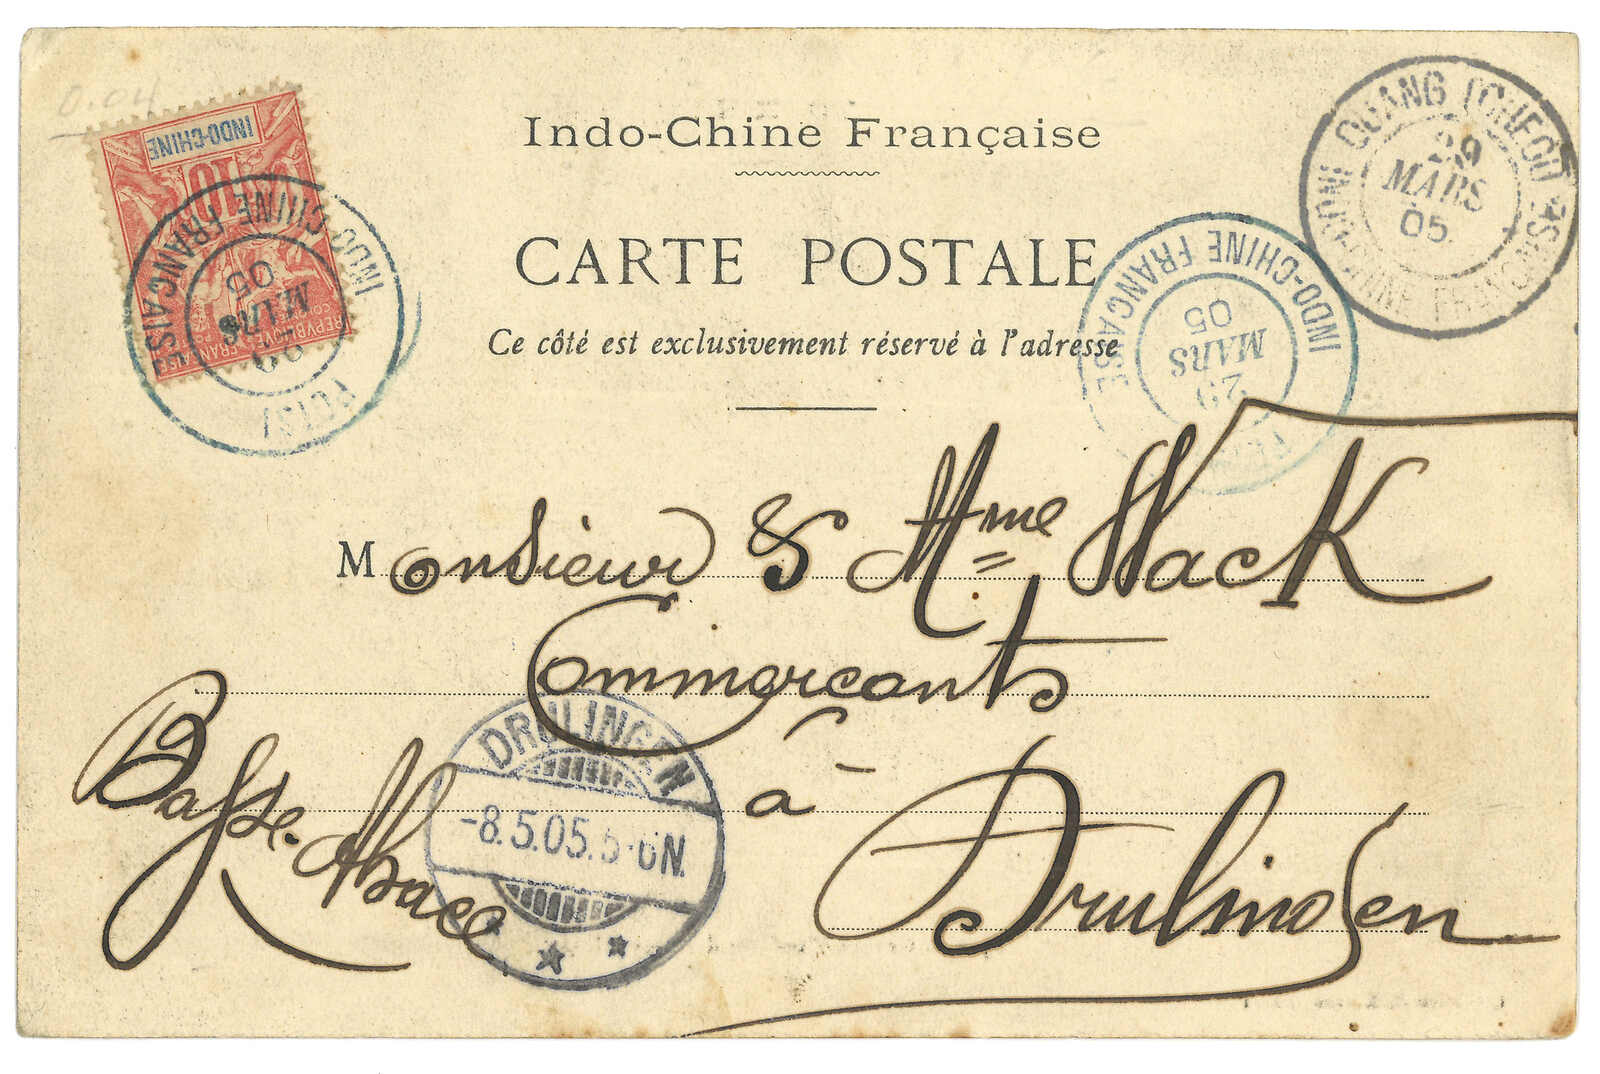 0.04
INDO-CHINE
10
REPVBLIQVE FRANÇAISE
INDO-CHINE FRANÇAISE
MARS
05
Indo-Chine Française
CARTE POSTALE
Ce côté est exclusivement réservé à l'adresse
INDO-CHINE FRANÇAISE
29
MARS
05
QUANG TCHEOU
29
MARS
05
INDO-CHINE FRANÇAISE
Monsieur & Mme Wack
Commerçants
à
Drulingen
Basse-Alsace
DRULINGEN
-8.5.05.5-6N.